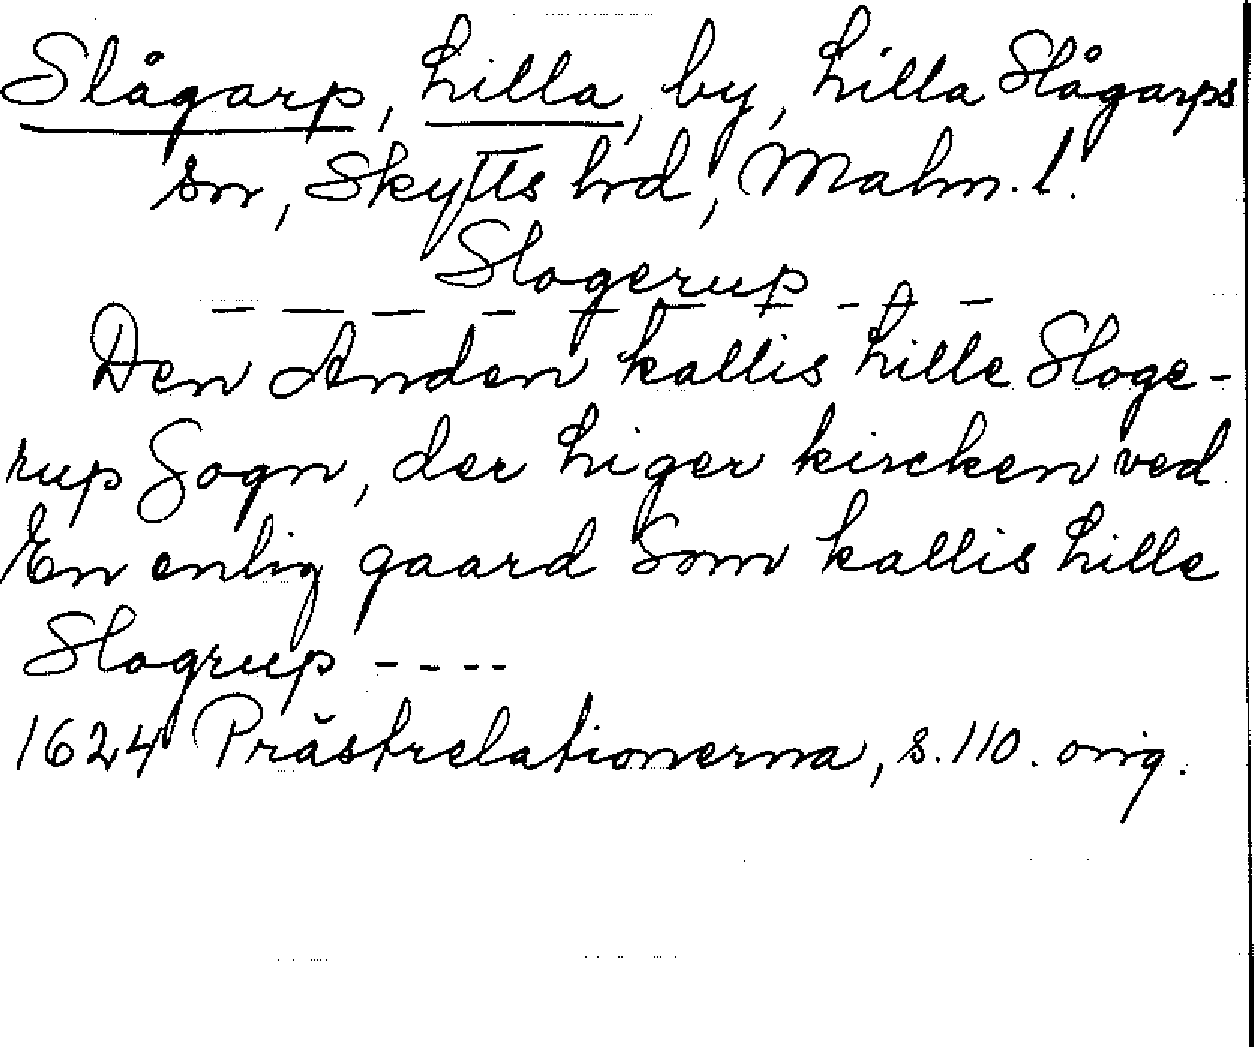 Slågarp, Lilla, by, Lilla Slågarps
sn, Skytts hrd, Malm. l.
Slogerup
— — — — — — — — —
Den Anden kallis Lille Sloge-
rup Sogn, der Liger kircken ved
En enlig gaard Som kallis Lille
Slogrup ----
1624 Prästrelationerna, s. 110. orig.